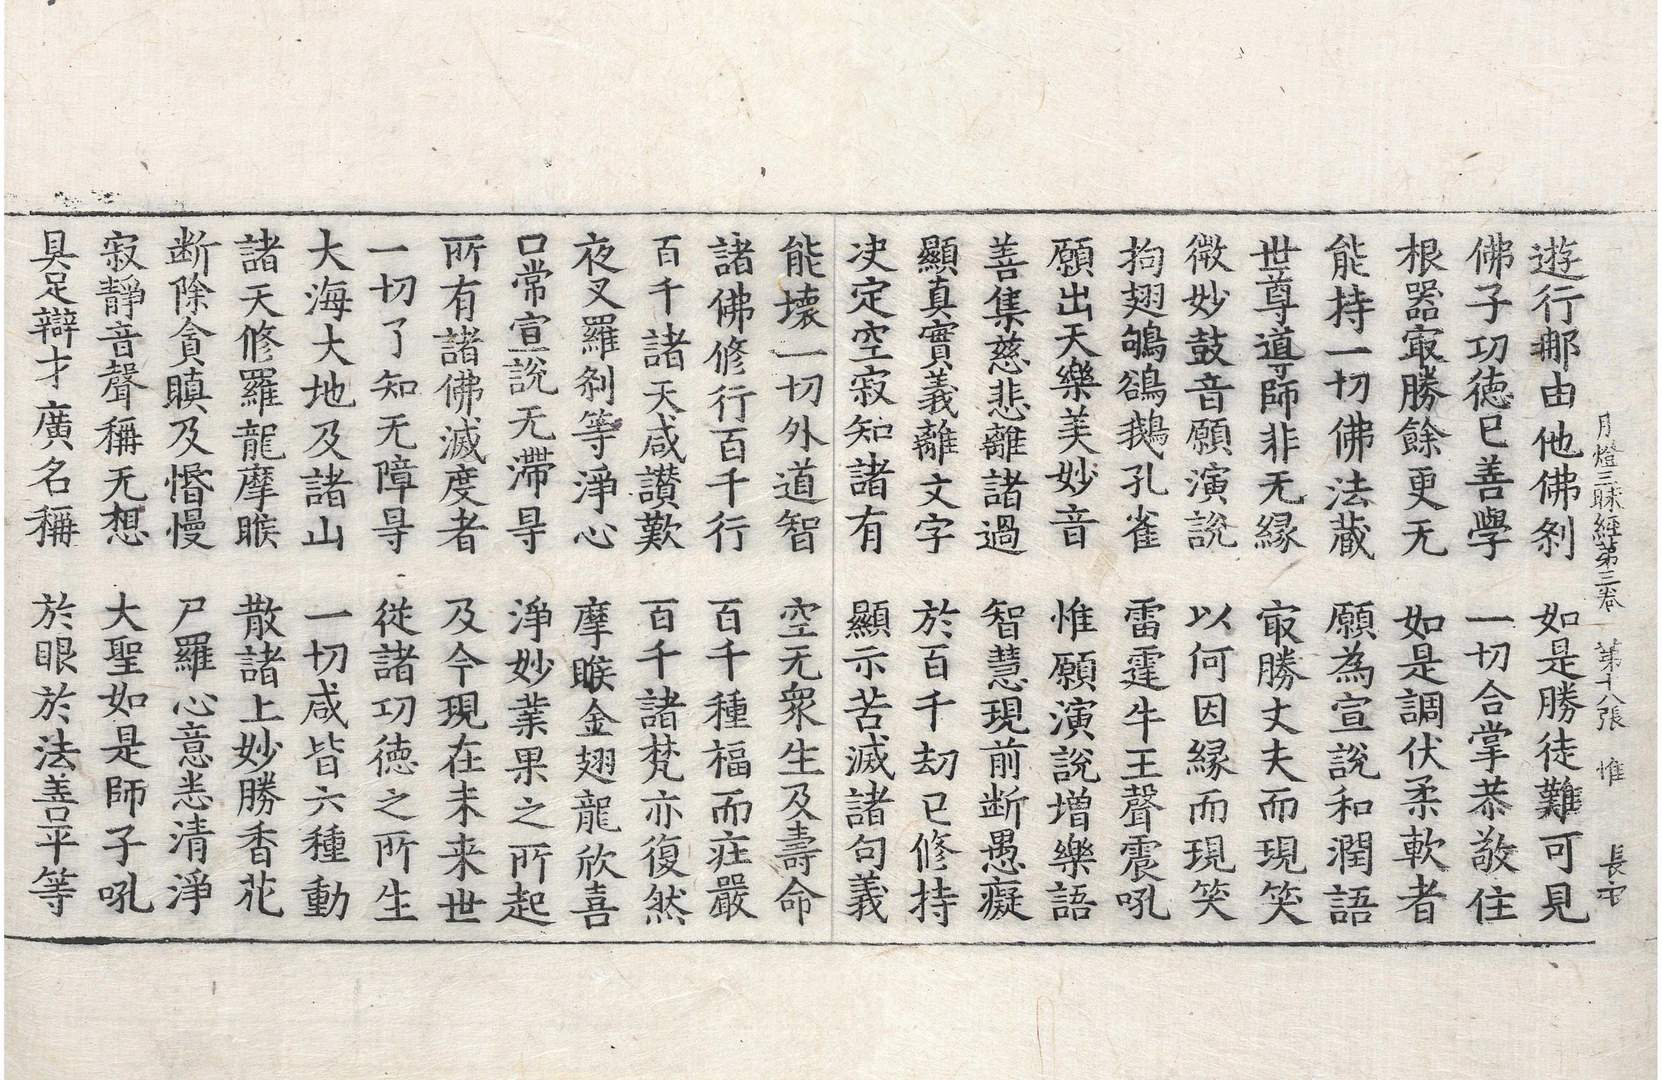 月燈三昧經第三卷　第十八張　惟　長宏
遊行那由他佛刹　如是勝徒難可見
佛子功德已善學　一切合掌恭敬住
根器冣勝餘更无　如是調伏柔軟者
能持一切佛法藏　願為宣說和潤語
世尊導師非无緣　冣勝丈夫而現笑
微妙鼓音願演說　以何因緣而現笑
拘翅鴝鵒鵝孔雀　雷霆牛王聲震吼
願出天樂美妙音　惟願演說增樂語
善集慈悲離諸過　智慧現前断愚癡
顯真實義離文字　於百千劫已修持
决定空寂知諸有　顯示苦滅諸句義
能壞一切外道智　空无衆生及壽命
諸佛修行百千行　百千種福而莊嚴
百千諸天咸讃歎　百千諸梵亦復然
夜叉羅刹等淨心　摩睺金翅龍欣喜
口常宣說无滯㝵　淨妙業果之所起
所有諸佛滅度者　及今現在未来世
一切了知无障㝵　從諸功德之所生
大海大地及諸山　一切咸皆六種動
諸天修羅龍摩睺　散諸上妙勝香花
断除貪瞋及惛慢　尸羅心意恙清淨
寂靜音聲稱无想　大聖如是師子吼
具足辯才廣名稱　於眼於法善平等